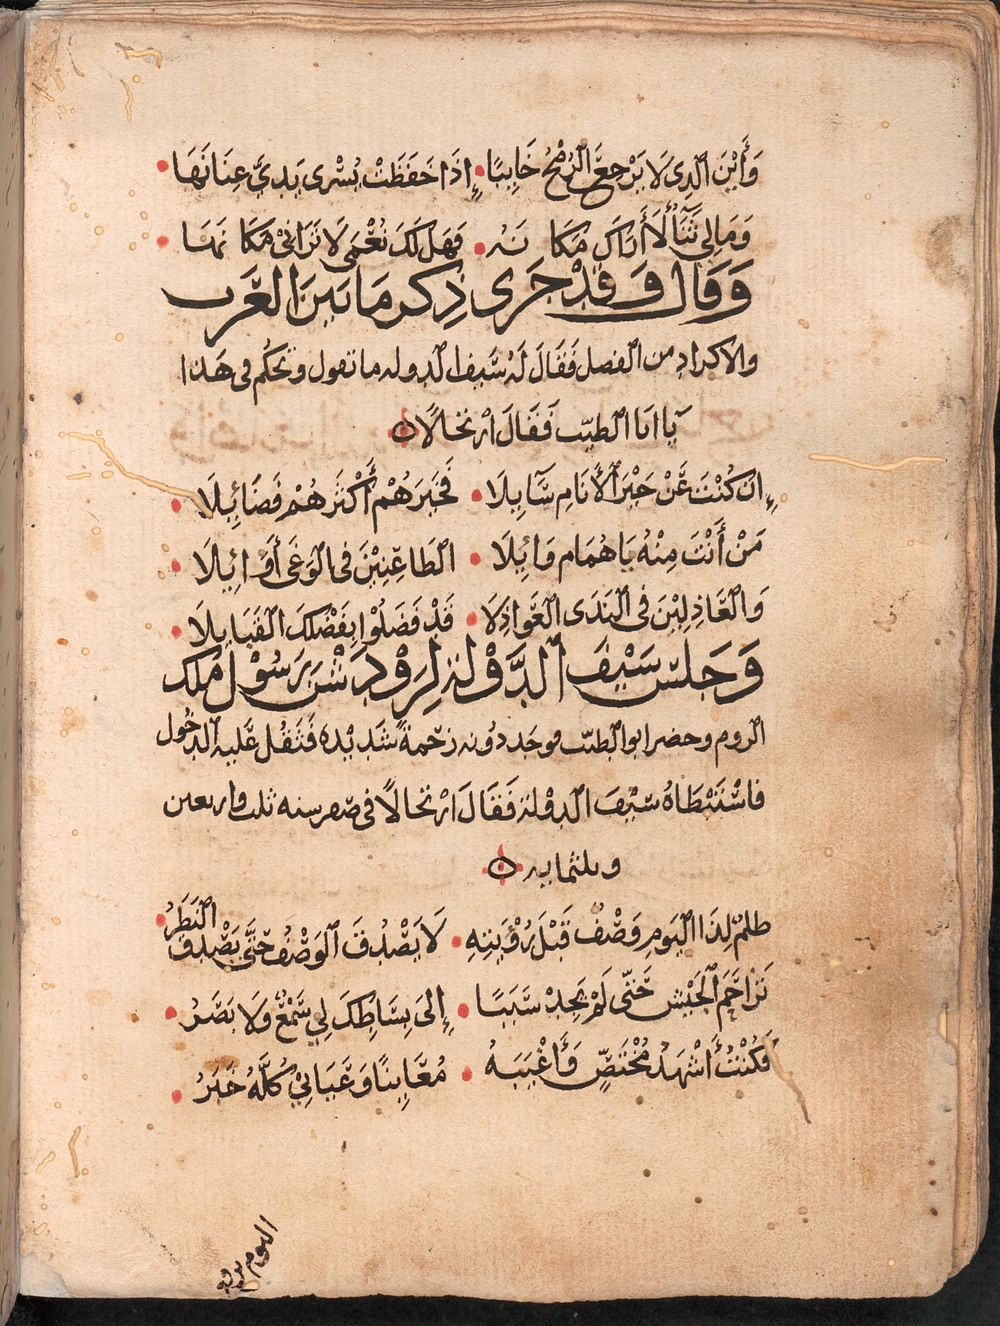 وَأَيْنَ الَّذِى لَا يَرْجِعُ الرُّمْحُ خَايِبًا • إِذَا خَفَظَتْ يُسْرَى يَدَيَّ عِنَانَهَا •
وَمَالِي ثَنَآءٌ لَا أَرَاكَ مَكَانَهُ • فَهَل لَّكَ نُعْمَى لَا تَرَانِيْ مَكَانَهَا •
وَقَالَ وَقَدْ جَرَى ذِكر مَا بَيْنَ العَرَب
والاكراد من الفضل فَقَالَ لَهُ سَيْف الدوله ما تقول وتحكم فى هَذا
يَا ابَا الطيّب فَقَالَ ارْتِجَالًا ه
إِن كُنْتَ عَنْ خَيْرِ الأَنَامِ سَآيِلَا • فَخَيرُهُمْ أَكْثَرهُمْ فَضَائِلَا •
مَنْ أَنْتَ مِنْهُ يَا هُمَام وَائِلَا • الطَاعِنِيْنَ فى الوَغَى أَوَائِلَا •
وَالعَاذِلِيْنَ فى النَدَى العَوَاذِلَا • قَدْ فَضَلُوْا بِفَضْلِكَ القَبَايِلَا •
وَجَلسَ سَيْفَ الدَّوْلَه لِرَسُوْل مَلك
الروم وحضر ابو الطيّب فوجد دونه زحْمةً شَدِيْده فَثَقُل عَلَيه الدخُول
فاسْتَبْطَاهُ سَيْفَ الدوْله فَقَالَ ارْتجالًا فى صفر سنه ثلث واربعين
وثلثمايه ه
ظلمٌ لِذَا اليَومِ وَصْفٌ قَبْلَ رُؤْيَتِهِ • لَا يَصْدُقُ الوَصْفُ حَتَّى يَصْدُقُ النَظَرُ •
تَزَاحَم الجَيْشُ حَتّى لَمْ يَجِدْ سَبَبًا • إِلىَ بِسَاطِكَ لِي سَمْعٌ وَلَا بَصَرُ •
فَكُنْتُ أَشْهَدُ مُخْتَصٍّ وَأَغْيَبَهُ • مُعَايِنًا وَعَيَانِيْ كُلّهُ خَبَرُ •
اليوم يرفع